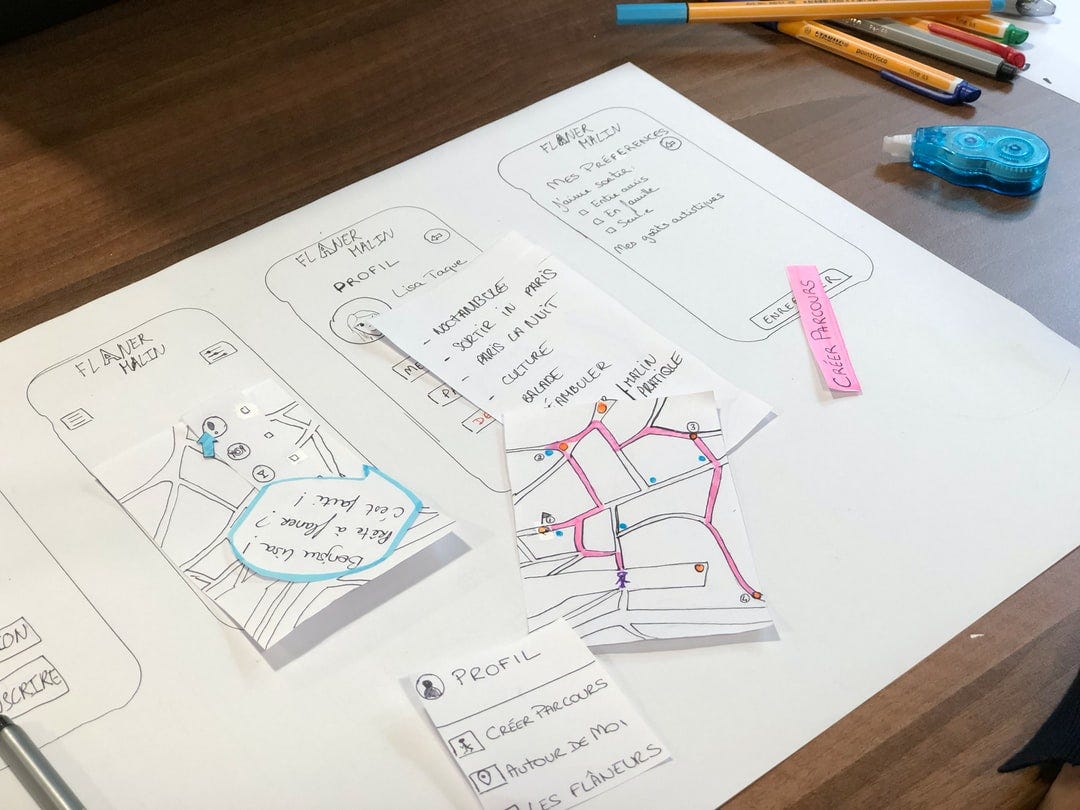 FLÂNER
MALIN
MES PRÉFERENCES
J'aime sortir:
Entre amis
En famille
Seul·e
Mes goûts artistiques
CRÉER PARCOURS
FLÂNER
MALIN
PROFIL
Lisa Taque
- NOCTAMBULE
- SORTIR IN PARIS
- PARIS LA NUIT
- CULTURE
BALADE
MALIN
PRATIQUE
FLÂNER
MALIN
Bonjour Lisa!
Prête à flâner?
C'est parti!
1
2
3
4
PROFIL
CRÉER PARCOURS
AUTOUR DE MOI
LES FLÂNEURS